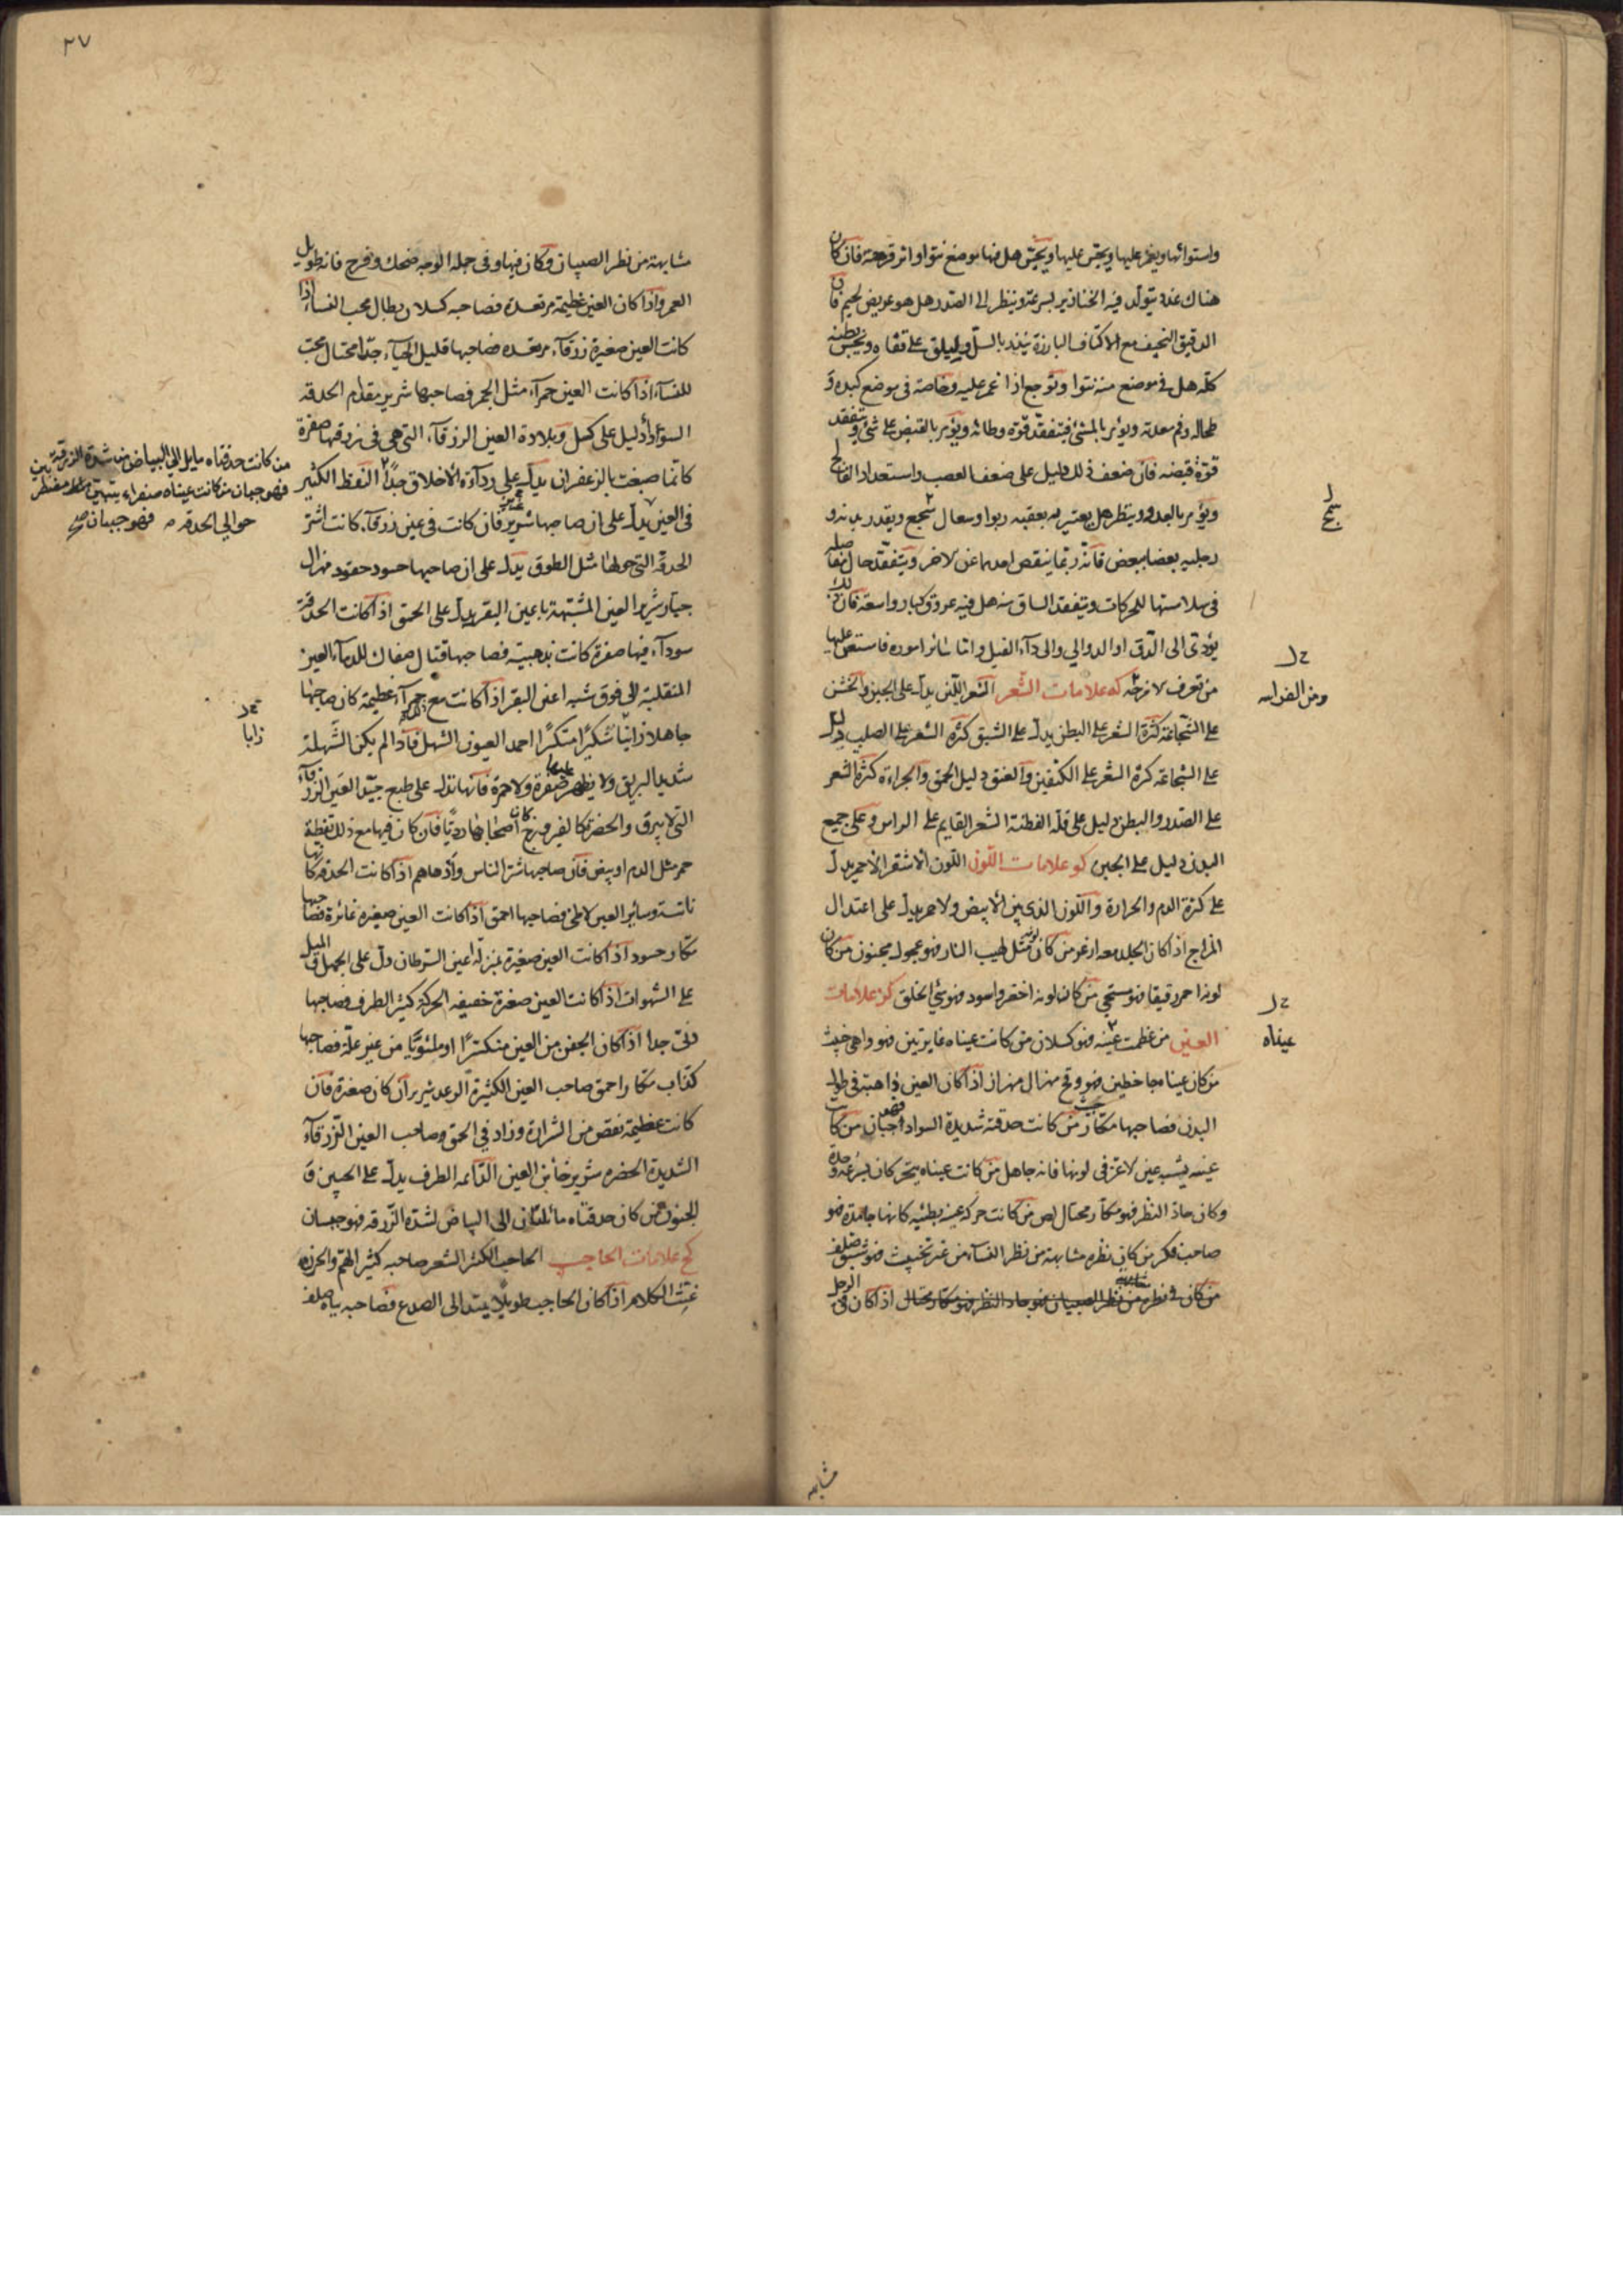 واستوائها ويغمز عليها ويجس عليها ويجس هل فيها موضع نتوا او اثر قرحة فان كان
هناك غدد يتولد فيه الخنازير بسرعة وينظر الى الصدر هل هو عريض لحيم فان
الدقيق النحيف مع الاكتاف البارزة ينذر بالسل وليلق على قفاه ويجس بطنه
كله هل في موضع منه نتوا وتوجع اذا غمز عليه وخاصة في موضع كبده و
طحاله وفم معدته ويؤمر بالمشي فيتفقد قوة وطائه ويؤمر بالقبض على شي ويتفقد
قوة قبضه فان ضعف ذلك دليل على ضعف العصب واستعداد الفالج
ويؤمر بالعدو وينظر هل يعتريه بعقبه ربو او سعال سمج ويقدر يديه و
رجليه بعضا ببعض فانه ربما ينقص احدهما عن الاخر ويتفقد حال مفاصله
في سلاستها للحركات ويتفقد الساق منه هل فيه عروق كبار واسعة فان ذلك
يؤدى الى الدق او الدوالي والى دآء الفيل واما سائر اموره فاستعن عليها
من تعرف لا نرجئه كه علامات الشعر الشعر اللين يدل على الجبن والخشن
على الشجاعة كثرة الشعر على البطن يدل على الشبق كثرة الشعر على الصلب دليل
على الشجاعة كثرة الشعر على الكتفين والعنق دليل الحمق والجراءة كثرة الشعر
على الصدر والبطن دليل على قلة الفطنة الشعر القايم على الراس وعلى جميع
البدن دليل على الجبن كو علامات اللون اللون الاشقر الاحمر يدل
على كثرة الدم والحرارة واللون الذي بين الابيض والاحمر يدل على اعتدال
المزاج اذا كان الجلد معه ازعر من كان لونه مثل لهيب النار فهو عجول مجنون من كان
لونه احمر رقيقا فهو مستحي من كان لونه اخضر واسود فهو سئ الخلق كز علامات
العين من عظمت عينه فهو كسلان من كانت عيناه غايرتين فهو داهى خبيث
من كان عيناه جاحظين فهو وقح مهزال مهزار اذا كان العين ذاهبة في طول
البدن فصاحبها مكار خبيث من كانت حدقته شديدة السواد فهو جبان من كانت
عينه يشبه عين لاعز في لونها فانه جاهل من كانت عيناه يتحركان بسرعة وحدة
وكان حاد النظر فهو مكار محتال لص من كانت حركة عينه بطيئه كانها جامدة فهو
صاحب فكر من كان نظره مشابهة من نظر النسآء من غير تخنيث فهو شبق صلف
من كان في نظره مشابهة من نظر الصبيان فهو حاد النظر فهو مكار محتال اذا كان في نظر الرجل
سمج
خ ل
ومن الفراسه
خ ل
عيناه
مشابهه
٢٧
مشابهة من نظر الصبيان وكان فيها وفى جملة الوجه ضحك وفرح فانه طويل
العمر واذا كان العين عظيمة مرتعدة فصاحبه كسلان بطال محب النساء اذا
كانت العين صغيرة زرقآء مرتعده فصاحبها قليل الحيآء جدا محتال محب
للنسآء اذا كانت العين حمرآء مثل الجمر فصاحبها شرير مقدام الحدقة
السودآء دليل على كسل وبلادة العين الزرقآء التي هي في زرقها صفرة
كانما صبغت بالزعفران يدل على ردآءة الاخلاق جداً النقط الكثير
في العين يدل على ان صاحبها شرير فان كانت في عين زرقآء كانت اشر
الحدقة التي حولها مثل الطوق يدل على ان صاحبها حسود حقود مهزال
جبار شرير العين المشبهة باعين البقر يدل على الحمق اذا كانت الحدقة
سودآء فيها صفرة كانت مذهبية فصاحبها قتال صفاك للدمآء العين
المنقلبة الى فوق شبه اعين البقر اذا كانت مع ذلك حمرآء عظيمة كان صاحبها
جاهلا زانيا سكيراً متكبراً احمد العيون الشهل فاذا لم يكن الشهلة
شديدة البريق ولا يظهر عليها صفرة ولا حمرة فانها تدل على طبع جيد العين الزرقآء
التي لا تبرق والخضرة كالفيروزج كان اصحابها رديا فان كان فيها مع ذلك نقطة
حمر مثل الدم او بيض فان صاحبها شر الناس وادهاهم اذا كانت الحدقة كانها
ناتئة وساير العين لاطئ فصاحبها احمق اذا كانت العين صغيرة غائرة فصاحبها
مكار حسود اذا كانت العين صغيرة بمنزلة اعين السرطان دل على الجهل والميل
على الشهوات اذا كانت العين صغيرة خفيفه الحركة كثير الطرف فصاحبها
ردئ جدا اذا كان الجفن من العين منكسراً او ملتوياً من غير علة فصاحبها
كذاب مكار احمق صاحب العين الكثيرة الرعد شرير ان كان صغيرة فان
كانت عظيمة نقص من الشرارة وزاد في الحمق وصاحب العين الزرقآء
الشديدة الخضره شرير خائن العين الدائمه الطرف يدل على الجبن و
الجنون من كان حدقتاه مائلتان الى البياض لشدة الزرقه فهو جبان
كح علامات الحاجب الحاجب الكثير الشعر صاحبه كثير الهم والحزن
غث الكلام اذا كان الحاجب طويلا يمتد الى الصدغ فصاحبه تياه صلف
من كانت حدقتاه مايل الى البياض من شدة الزرقة بين
فهو جبان من كانت عيناه صفراء
حوالي الحدقه فهو جبان صح
خ ل
زانيا